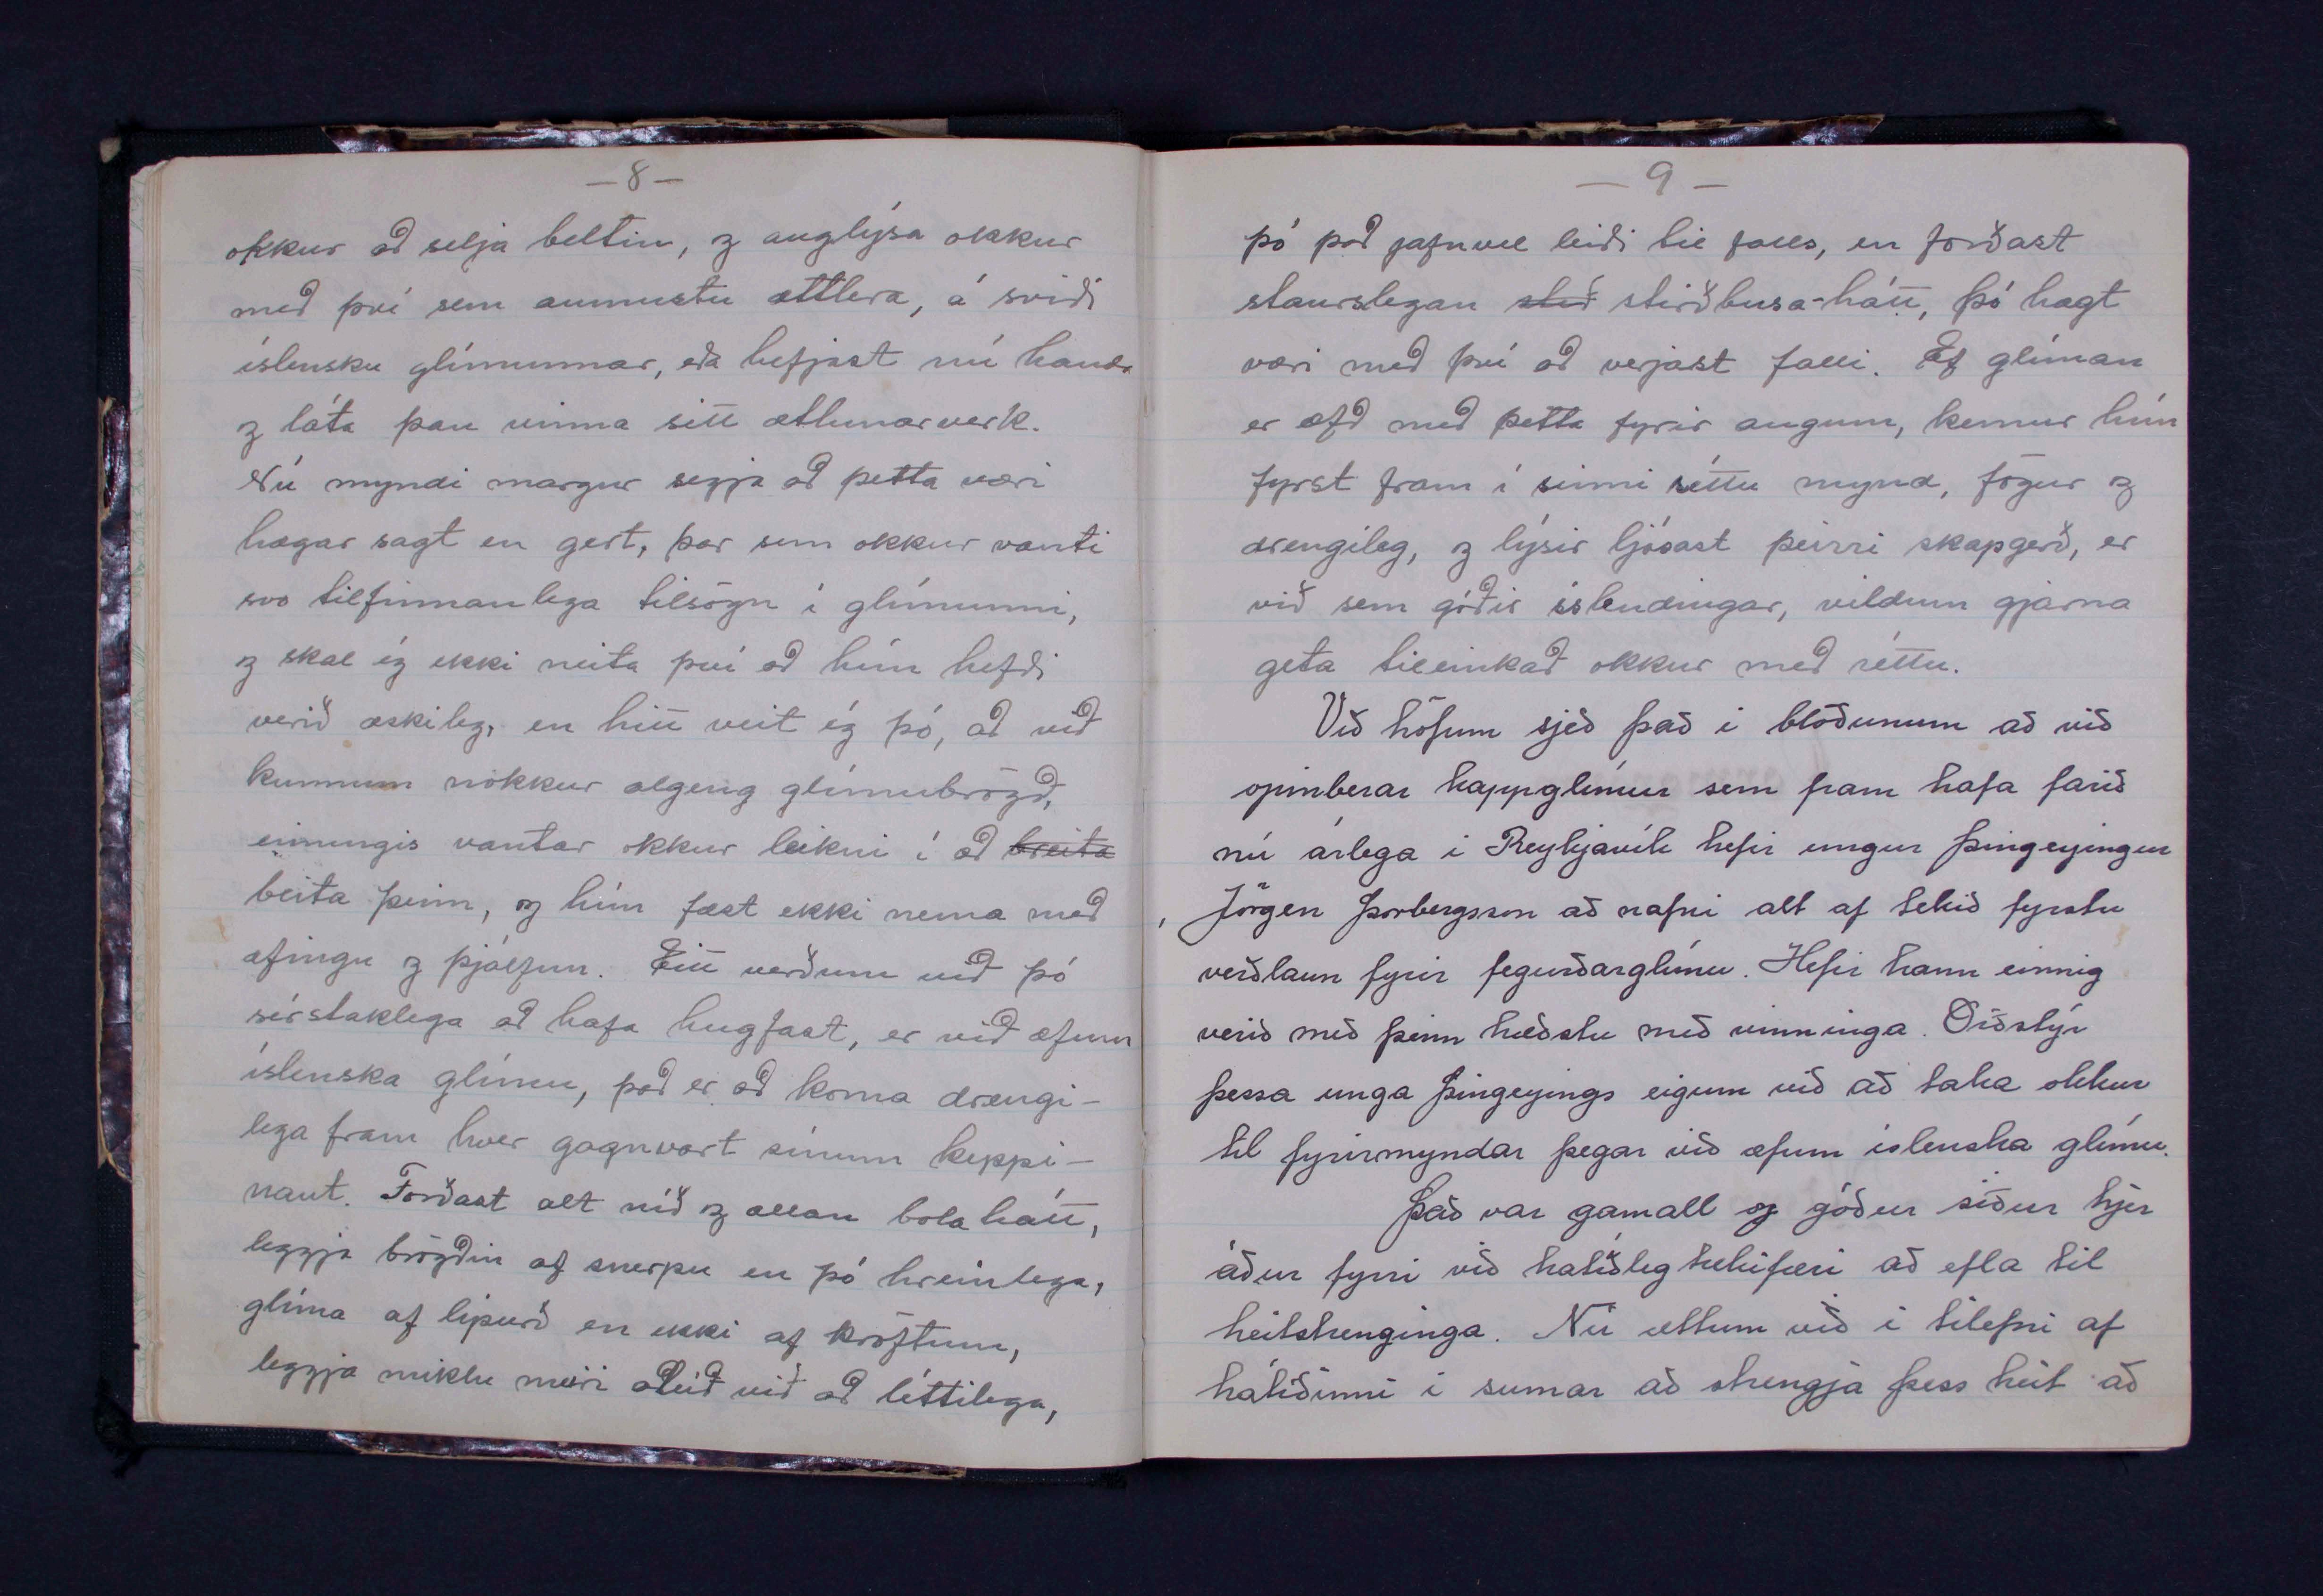 — 8 —
okkur að selja beltin, og auglýsa okkur
með því sem aumustu ættlera, á sviði
íslensku glímunnar, eða hefjast nú handa
og láta þau vinna sitt ætlunarverk.
Nú myndi margur segja að þetta væri
hægar sagt en gert, þar sem okkur vanti
svo tilfinnanlega tilsögn í glímunni,
og skal ég ekki neita því að hún hefði
verið æskileg, en hitt veit ég þó, að við
kunnum nokkur algeng glímubrögð,
einungis vantar okkur leikni í að breita
beita þeim, og hún fæst ekki nema með
æfingu og þjálfun. Eitt verðum við þó
sérstaklega að hafa hugfast, er við æfum
íslenska glímu, það er að koma drengi-
lega fram hver gagnvart sínum keppi-
naut. Forðast alt níð og allan bola hátt,
leggja brögðin af snerpu en þó hreinlega,
glíma af lipurð en ekki af kröftum,
leggja miklu meiri alúð við að léttilega,
— 9 —
þó það jafnvel leiði til falls, en forðast
staurslegan stið stirðbusa-hátt, þó hægt
væri með því að verjast falli. Ef glíman
er æfð með þetta fyrir augum, kemur hún
fyrst fram í sinni réttu mynd, fögur og
drengileg, og lýsir ljósast þeirri skapgerð, er
við sem góðir íslendingar, vildum gjarna
geta tileinkað okkur með réttu.
Við höfum sjeð það i blöðunum að við
opinberar kappglímur sem fram hafa farið
nú árlega i Reykjavík hefir ungur Þingeyingur
, Jörgen Þorbergsson að nafni alt af tekið fyrstu
verðlaun fyrir fegurðarglímu. Hefir hann einnig
verið með þeim hæðstu með vinninga. Orðstýr
þessa unga Þingeyings eigum við að taka okkur
til fyrirmyndar þegar við æfum íslenska glímu.
Það var gamall og góður siður hjer
áður fyrri við hatíðleg tækifæri að efla til
heitstrenginga. Nú ættum við i tilefni af
hátíðinni i sumar að strengja þess heit að